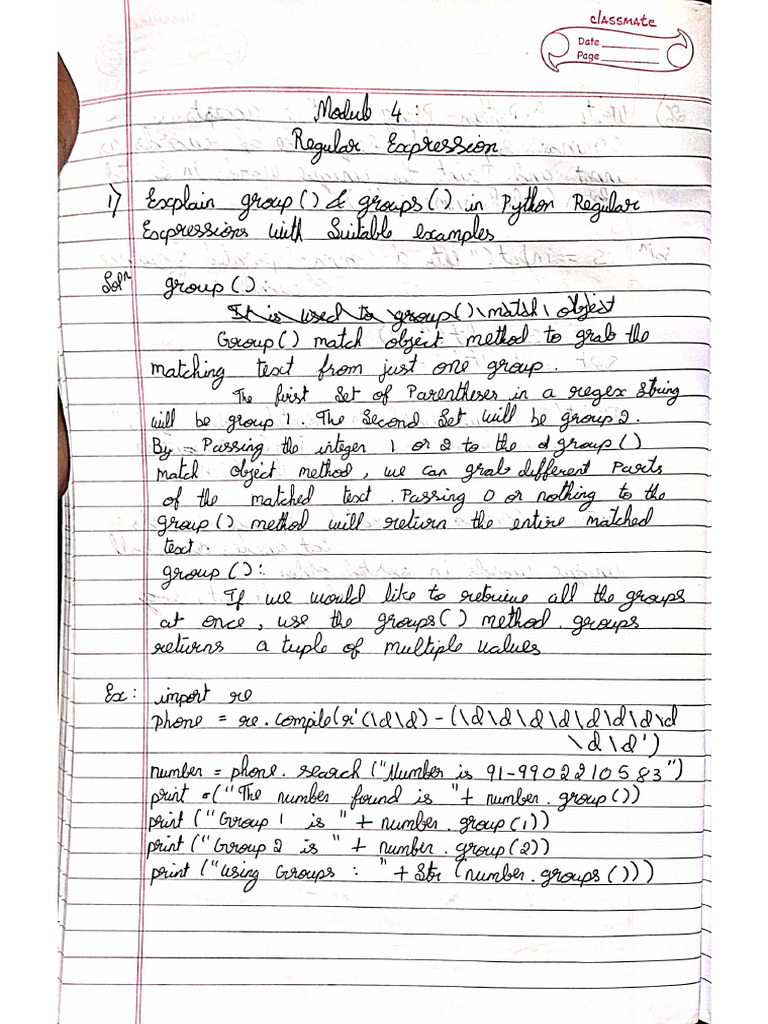 classmate
Date
Page
Module 4:
Regular Expression
1) Explain group() & groups() in Python Regular
Expressions with Suitable examples
Solⁿ group():
It is used to group() match object
Group() match object method to grab the
matching text from just one group.
The first Set of Parentheses in a regex string
will be group 1. The Second Set will be group 2.
By Passing the integer 1 or 2 to the group()
match object method, we can grab different Parts
of the matched text. Passing 0 or nothing to the
group() method will return the entire matched
text.
group():
If we would like to retrieve all the groups
at once, use the groups() method. groups
returns a tuple of multiple values
Ex: import re
phone = re.compile(r'(\d\d)-(\d\d\d\d\d\d\d\d
\d\d')
number = phone.search("Number is 91-9902210583")
print =("The number found is "+ number.group())
print ("Group 1 is "+ number.group(1))
print ("Group 2 is "+ number.group(2))
print ("using Groups : "+ Str (number.groups()))